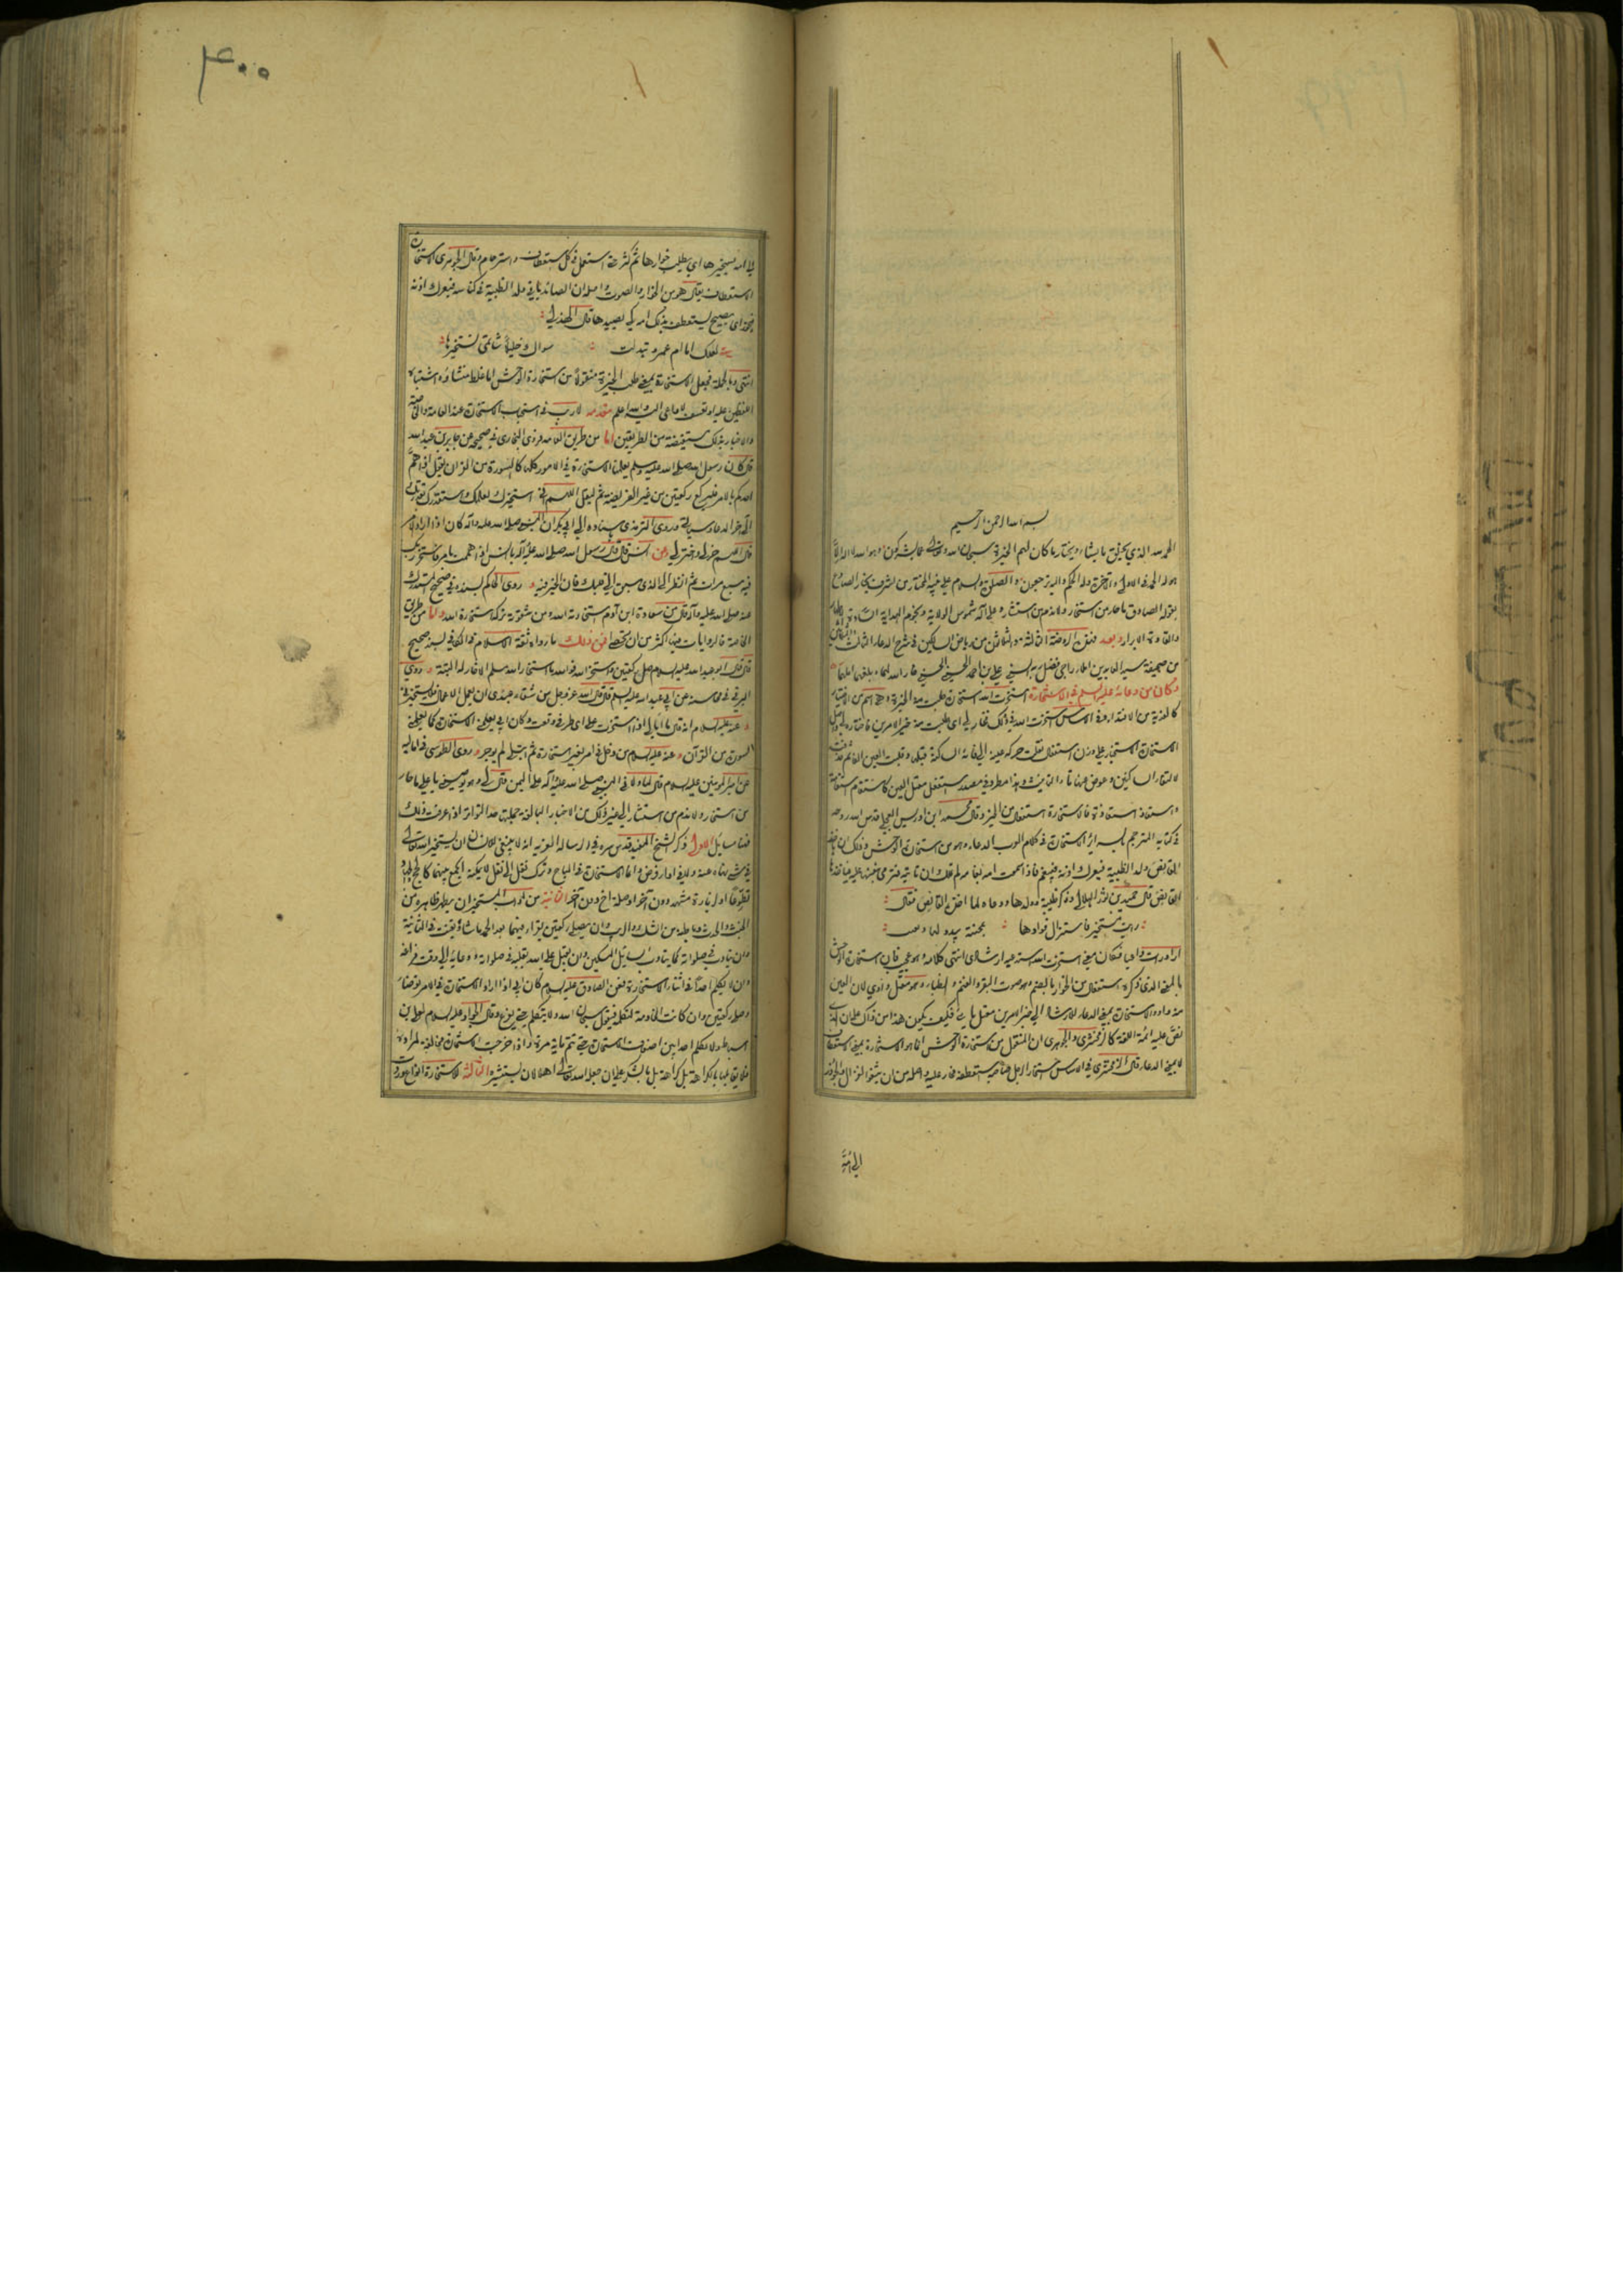 بسم الله الرحمن الرحيم
الحمد لله الذي يخلق ما يشاء ويختار ما كان لهم الخيرة سبحان الله وتعالى عما يشركون وهو الله لا اله الا
هو له الحمد في الاولى والآخرة وله الحكم واليه ترجعون والصلوة والسلام على نبيه المختار من اشرف
بقوله الصادق ما حار من استخار ولا ندم من استشار وعلى آله شموس الولاية ونجوم الهداية
والقادة الابرار وبعد فهذه الروضة الثالثة والثلاثون من رياض السالكين في شرح الدعاء الثالث والثلاثين
من صحيفة سيد العابدين املاء راجي فضل ربه السني علي بن احمد الحسيني الحسني
وكان من دعائه عليه السلم في الاستخارة استخرت الله استخارة طلبت منه الخيرة وهي اسم من الاختيار
كالفدية من الافتداء وفي الاساس استخرت الله في ذلك فخار لي اي طلبت منه خير الامرين فاختاره لي
الاستخارة استخيار على وزن استفعال نقلت حركة عينه الى فائه الساكنة قبلها وقلبت العين الفا ثم حذفت
لالتقاء الساكنين وعوض عنها تاء التانيث وهذا مطرد في مصدر استفعل معتل العين كاستقام استقامة
واستعاذ استعاذة فالاستخارة استفعال من الخير وقال محمد ابن ادريس العجلي قدس الله روحه
في كتابه المترجم بالسرائر الاستخارة في كلام العرب الدعاء وهو من استخارة الوحش وذلك ان ياخذ
القانص ولد الظبية فيعرك اذنه فيبغم فاذا سمعت امه بغامه لم تملك ان تاتيه فترمي بنفسها عليه فياخذها
القانص قال حميد بن ثور الهلالي وذكر ظبية وولدها ودعاءه لها لما اخذه القانص فقال
رأت مستخيرا فاستزال فؤادها بمحنية يبدو لها ويغيب
اراد رأت داعيا فكان معنى استخرت الله استدعيته ارشادي انتهى كلامه وهو عجيب فان استخارة الوحش
بالمعنى الذي ذكره استفعال من الخوار بالضم وهو صوت البقر والغنم والظباء وهو معتل واوي لان العين
منه واو والاستخارة بمعنى الدعاء للارشاد الى خير الامرين معتل يائي فكيف يكون هذا من ذاك على ان الذي
نص عليه ائمة اللغة كالزمخشري والجوهري ان المنقول من استخارة الوحش انما هو الاستخارة بمعنى الاستعطاف
لا بمعنى الدعاء قال الزمخشري في الاساس استخار الرجل صاحبه استعطفه فخار عليه واصله من ان يثغو الغزال او الجؤذر
الى امه
۴۰۰
الى امه يستخيرها اي يطلب خوارها ثم كثر حتى استعمل في كل استعطاف واسترحام وقال الجوهري الاستخارة
الاستعطاف يقال هو من الخوار والصوت واصله ان الصائد ياتي ولد الظبية في كناسه فيعرك اذنه
فيخور اي يصيح يستعطف بذلك امه كي يصيدها قال الهذلي
لعلك اما ام عمرو تبدلت سواك خليلا شاتمي تستخيرها
انتهى وبالجملة فجعل الاستخارة بمعنى طلب الخيرة منقولا من استخارة الوحش اما غلط منشاؤه اشتباه
اللفظين عليه او تعسف لا داعي اليه والله اعلم مقدمة لا ريب في استحباب الاستخارة عند العامة والخاصة
والاخبار بذلك مستفيضة من الطريقين اما من طريق العامة فروى البخاري في صحيحه عن جابر بن عبد الله
قال كان رسول الله صلى الله عليه وسلم يعلمنا الاستخارة في الامور كلها كالسورة من القران يقول اذا هم
احدكم بالامر فليركع ركعتين من غير الفريضة ثم ليقل اللهم اني استخيرك بعلمك واستقدرك بقدرتك
الى آخر الدعاء وسياتي وروى الترمذي باسناده الى ابي بكر ان النبي صلى الله عليه وآله كان اذا اراد الامر
قال اللهم خر لي واختر لي وعن انس قال قال رسول الله صلى الله عليه وآله يا انس اذا هممت بامر فاستخر ربك
فيه سبع مرات ثم انظر الى الذي سبق الى قلبك فان الخير فيه وروى الحاكم بسنده في صحيح المستدرك
عنه صلى الله عليه وآله قال من سعادة ابن آدم استخارته الله ومن شقوته تركه استخارة الله واما من طريق
الخاصة فالروايات فيها اكثر من ان تحصى فمن ذلك ما رواه ثقة الاسلام في الكافي بسند صحيح
قال قال ابو عبد الله عليه السلام صل ركعتين واستخر الله فوالله ما استخار الله مسلم الا خار له البتة وروى
البرقي في محاسنه عن ابي عبد الله عليه السلم قال قال الله عز وجل من شقاء عبدي ان يعمل الاعمال فلا يستخيرني
وعنه عليه السلام انه قال ما ابالي اذا استخرت على اي طرفي وقعت وكان ابي يعلمني الاستخارة كما يعلمني
السورة من القرآن وعنه عليه السلام من دخل في امر بغير استخارة ثم ابتلى لم يوجر وروى الطوسي في اماليه
عن امير المؤمنين عليه السلام قال لما ولاني النبي صلى الله عليه وآله على اليمن قال لي وهو يوصيني يا علي ما حار
من استخار ولا ندم من استشار الى غير ذلك من الاخبار البالغة جملتها حد التواتر اذا عرفت ذلك
فهنا مسايل الاولى ذكر الشيخ المفيد قدس سره في الرسالة العزية انه لا ينبغي للانسان ان يستخير الله تعالى
في شيء نهاه عنه ولا في اداء فرض وانما الاستخارة في المباح وترك نفل الى نفل لا يمكنه الجمع بينهما كالحج والجهاد
تطوعا او لزيارة مشهد دون آخر او صلة اخ دون آخر الثانية من اداب المستخير ان يطهر ظاهره من
الخبث والحدث وباطنه من الشك والريب وان يصلي ركعتين يقرا فيهما بعد الحمد ما شاء ويقنت في الثانية
وان يتادب في صلواته كما يتادب السايل المسكين وان يقبل على الله بقلبه في صلواته ودعائه الى وقت فراغه
وان لا يكلم احدا في اثناء الاستخارة فعن الصادق عليه السلام كان ابي اذا اراد الاستخارة في الامر توضا
وصلى ركعتين وان كانت الخادمة لتكلمه فيقول سبحان الله ولا يتكلم حتى يفرغ وقال الجواد عليه السلام لعلي بن
اسباط ولا تكلم احدا بين اضعاف الاستخارة حتى تتم ماية مرة واذا خرجت الاستخارة مخالفة لمراده
فلا يقابلها بالكراهة بل بالشكر على ان جعله الله تعالى اهلا لان يستشيره الثالثة للاستخارة انواع